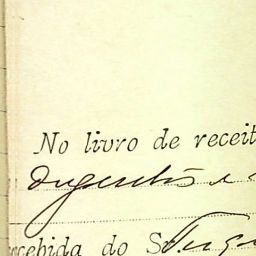 No livro de receit
duzentos e
cebida do Sr.